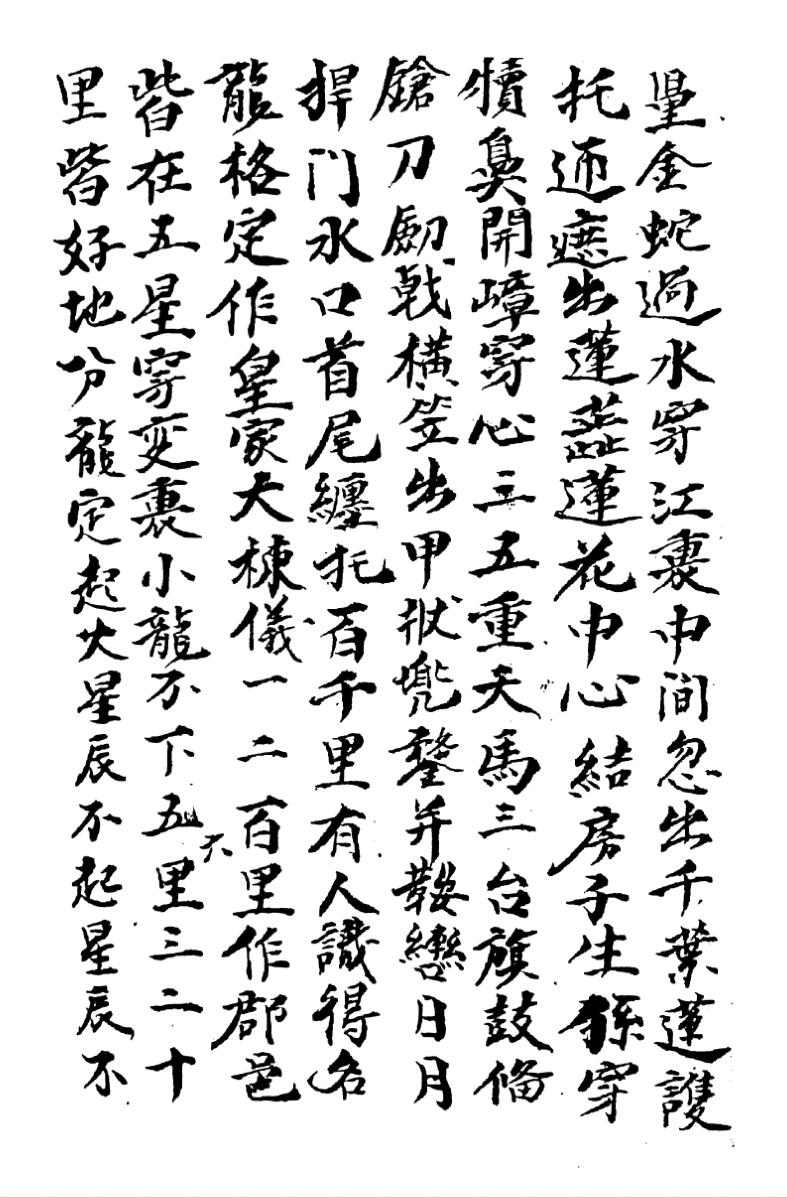 量金蛇過水穿江裏中間忽出千葉蓮護
托迊遮出蓮蕋蓮花中心結房子生孫穿
犢鼻開嶂穿心三五重天馬三台旗鼓俻
鎗刀劔戟橫笠出甲狀兠鍪并鞍繼日月
捍门水口首尾纏托百千里有人識得名
龍格定作皇家大棟儀一二百里作郡邑
皆在五星穿变裏小龍不下五六里三二十
里皆好地分龍定起火星辰不起星辰不